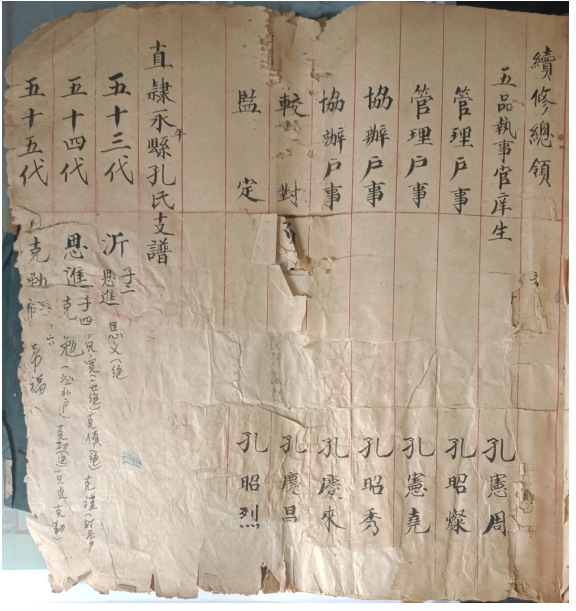 續修總領
五品執事官庠生 孔憲周
管理戶事 孔昭燦
管理戶事 孔憲堯
協辦戶事 孔昭秀
協辦戶事 孔慶來
較對 孔慶昌
監定 孔昭烈
直隸永年縣孔氏支譜
五十三代 沂 子一 思進 思文(絕
五十四代 思進 子四 克勉 克寬 克慎 克瑾
五十五代 克勤 希福